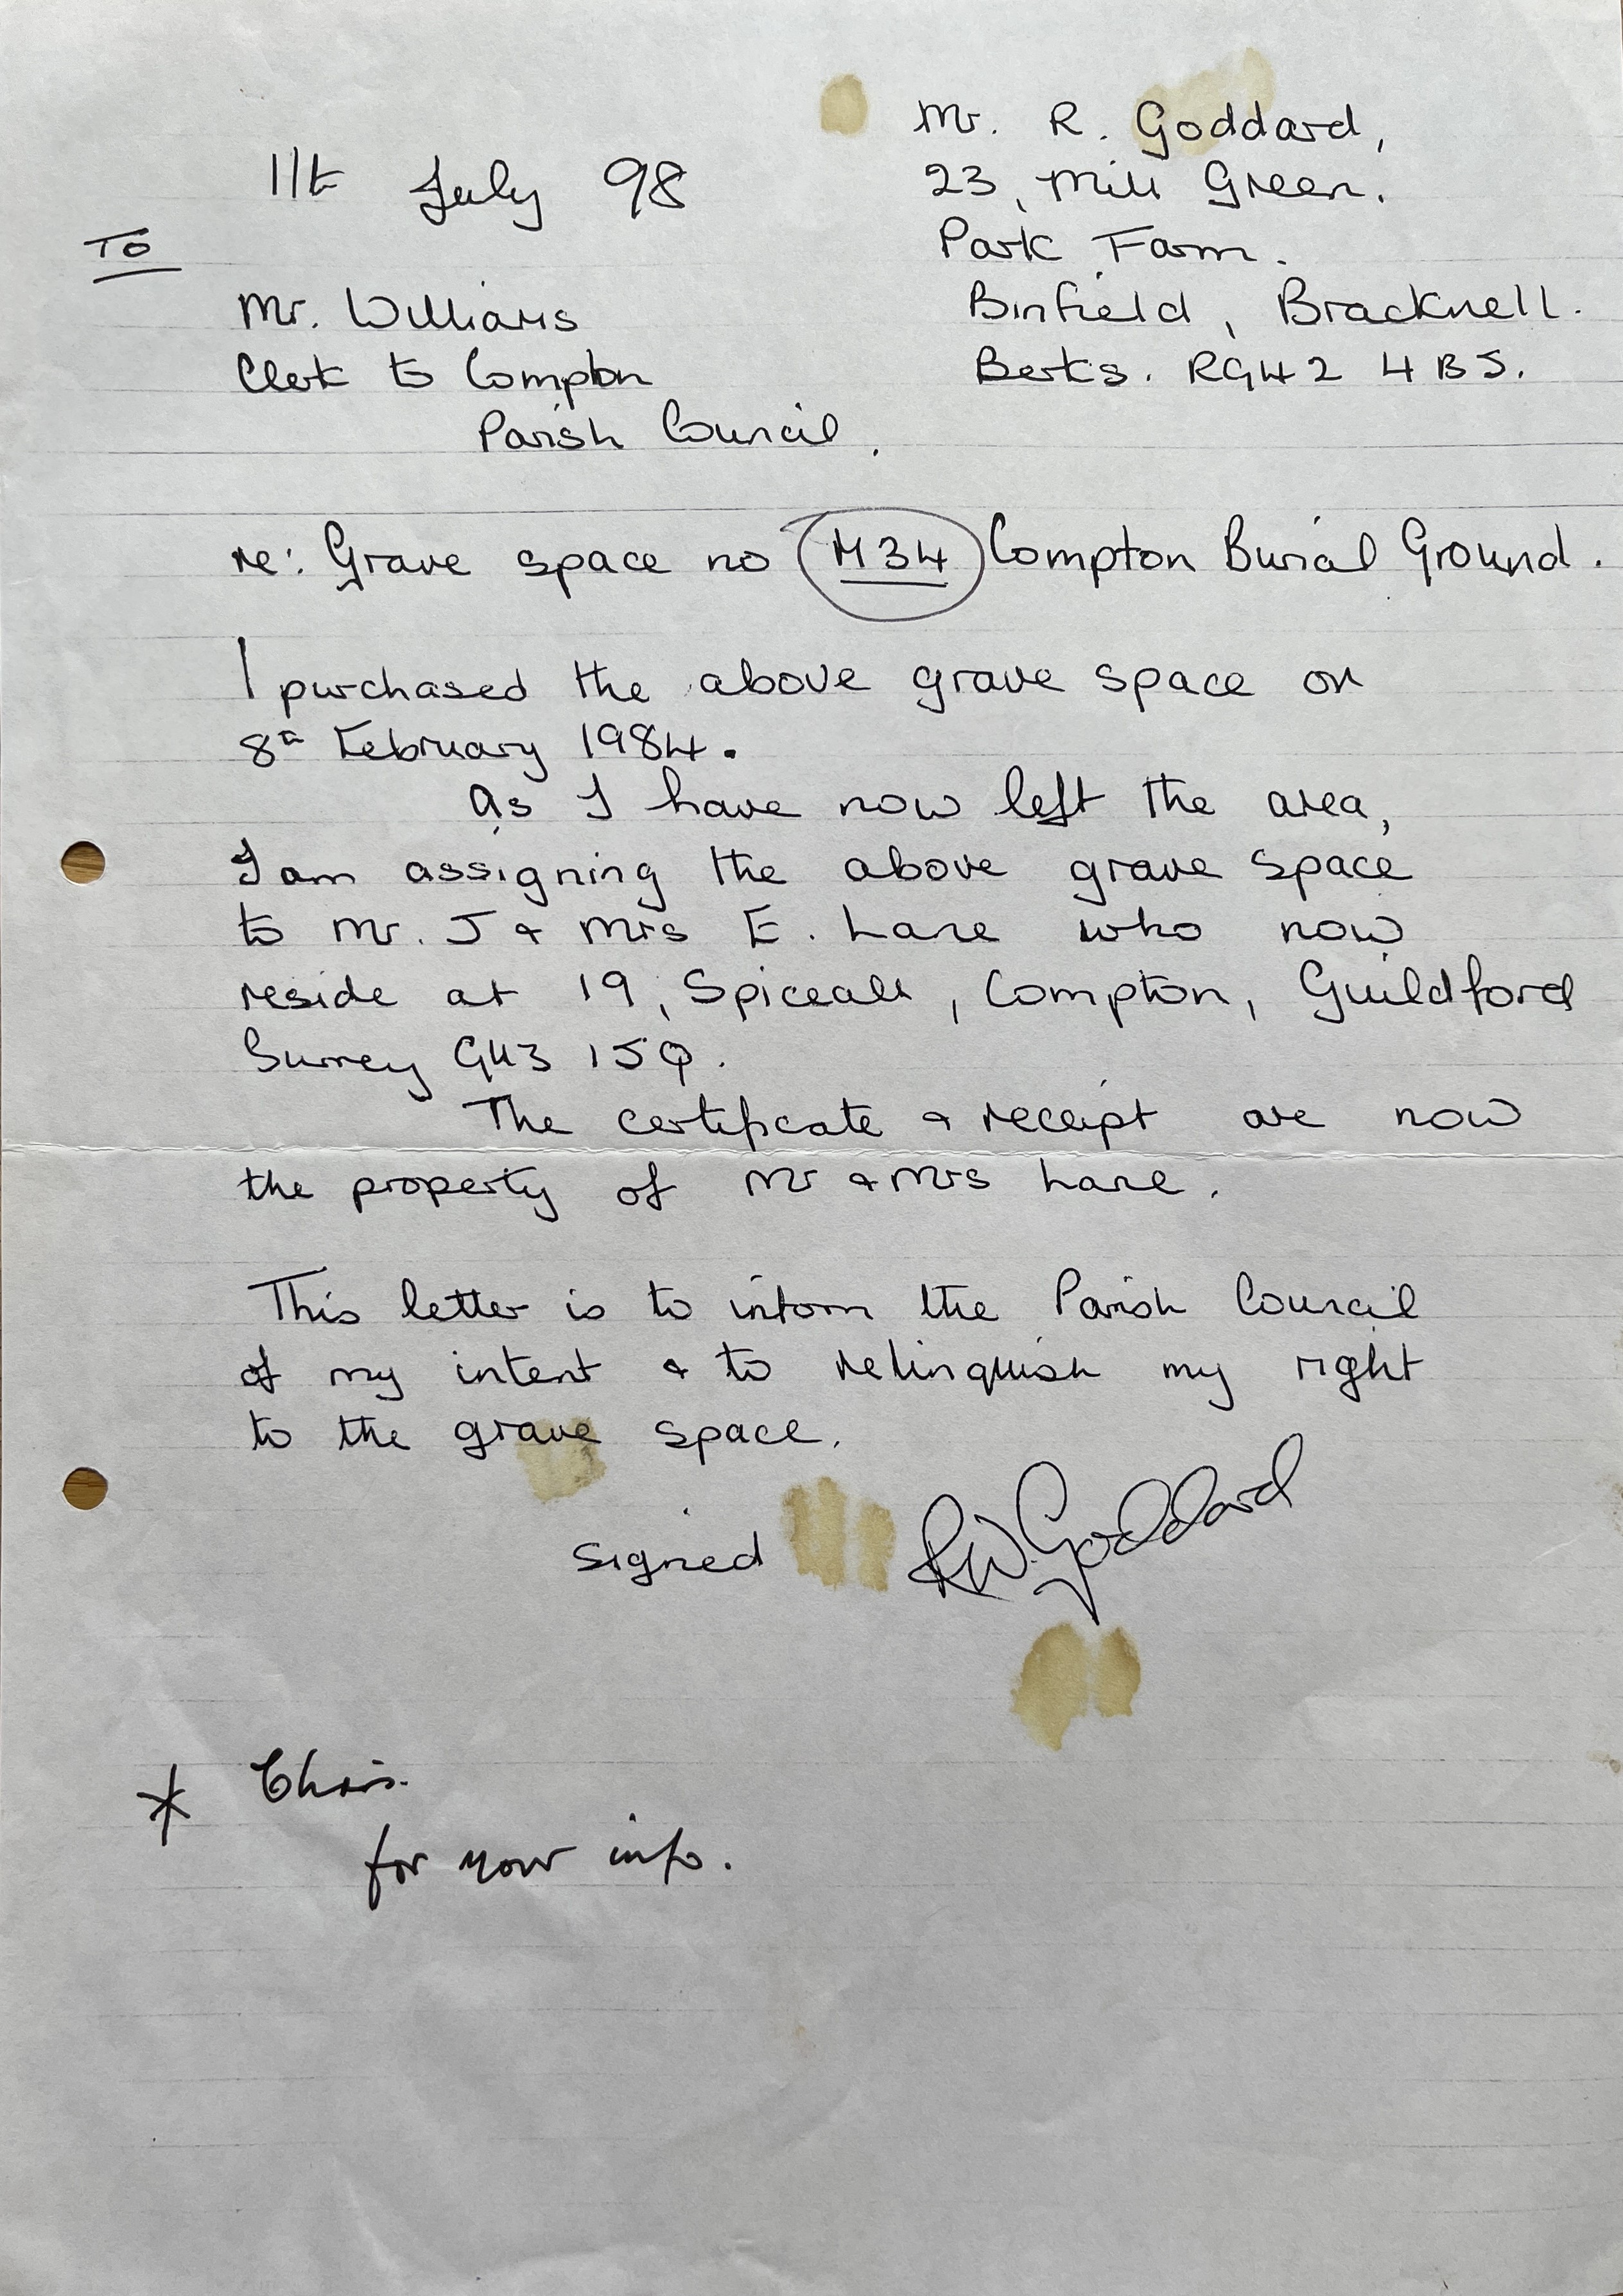 Mr. R. Goddard,
11th July 98
23, Mill Green.
Park Farm.
To
Mr. Williams
Binfield, Bracknell.
Clerk to Compton
Berks. RG42 4BJ.
Parish Council.
re: Grave space no M34 Compton Burial Ground.
I purchased the above grave space on
8th February 1984.
As I have now left the area,
I am assigning the above grave space
to Mr. J & Mrs E. Lane who now
reside at 19, Spiceall, Compton, Guildford
Surrey GU3 1JQ.
The certificate & receipt are now
the property of Mr & Mrs Lane.
This letter is to inform the Parish Council
of my intent & to relinquish my right
to the grave space.
signed RW.Goddard
* Chris.
for your info.